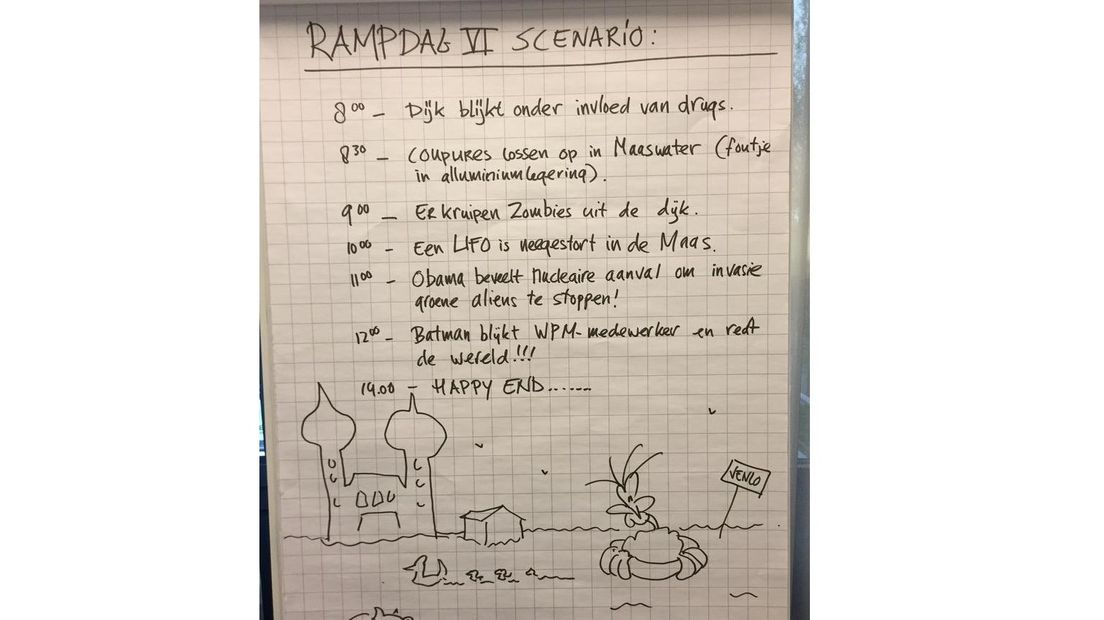 RAMPDAG VI SCENARIO:
8⁰⁰ – Dijk blijkt onder invloed van drugs.
8³⁰ – COUPURES lossen op in Maaswater (foutje
in alluminiumlegering).
9⁰⁰ – Er kruipen Zombies uit de dijk.
10⁰⁰ – Een UFO is neegestort in de Maas.
11⁰⁰ – Obama beveelt nucleaire aanval om invasie
groene aliens te stoppen!
12⁰⁰ – Batman blijkt WPM-medewerker en redt
de wereld!!!
14.00 – HAPPY END.......
VENLO